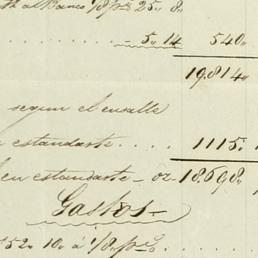 al Banco 1/8 p% 25„ 8„
5„ 14 540„
19,814„
segun el ensalle
estandarte 1115„
en estandarte – oz 18,698„
Gastos
52„ 10„ á 1/8 p%